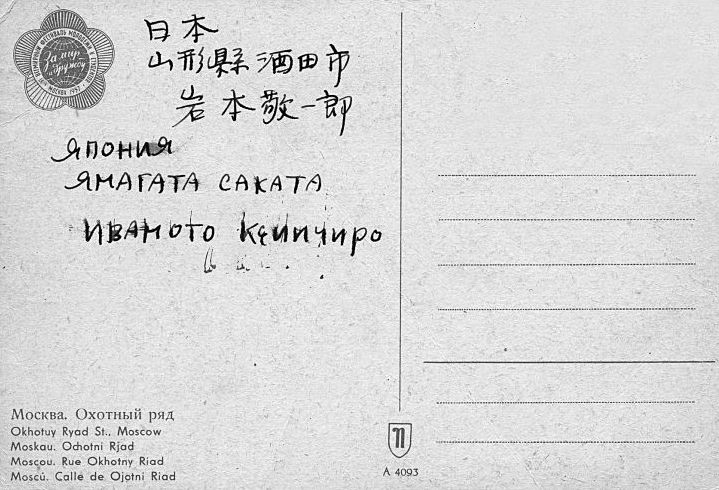 За мир
и дружбу
日本
山形縣酒田市
岩本敬一郎
ЯПОНИЯ
ЯМАГАТА САКАТА
ИВАМОТО
Москва. Охотный ряд
Okhotuy Ryad St., Moscow
Moskau. Ochotni Rjad
Moscou. Rue Okhotny Riad
Moscú. Calle de Ojotni Riad
А 4093